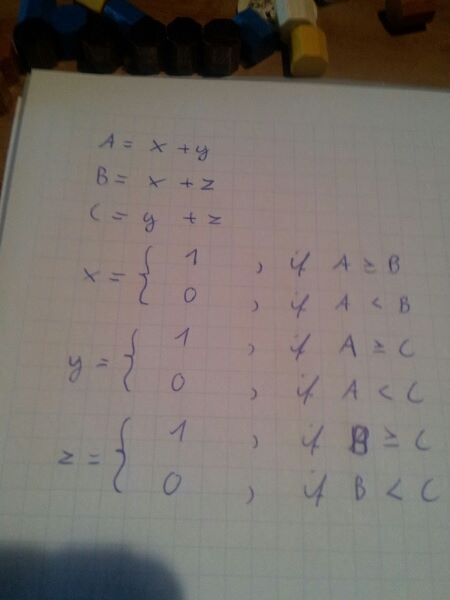 A = x + y
B = x + z
C = y + z
x = { 1 , if A ≥ B
0 , if A < B
y = { 1 , if A ≥ C
0 , if A < C
z = { 1 , if B ≥ C
0 , if B < C